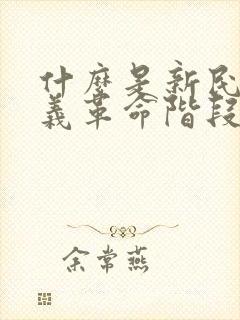 什麽是新民
義革命階段
余常燕